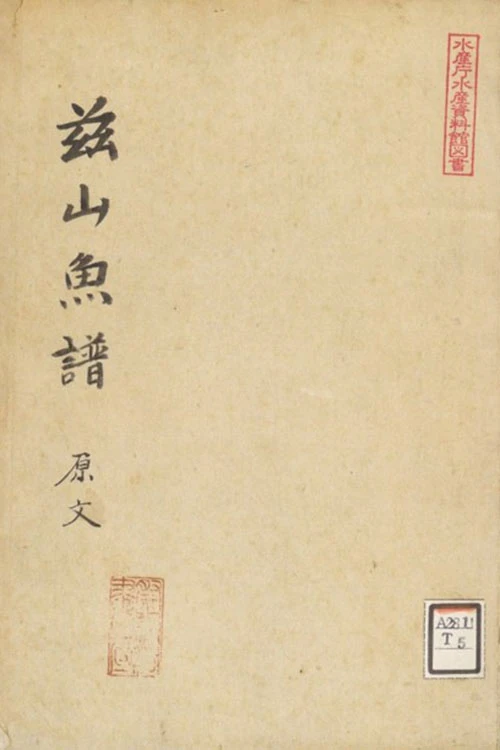 水産庁水産資料館図書
玆山魚譜
原文
A28.1U
T 5